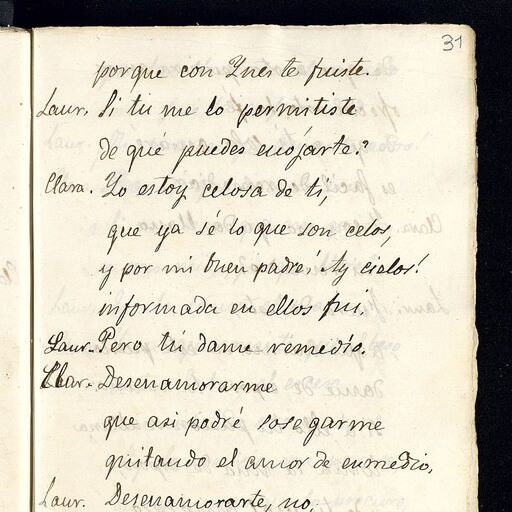 31
porque con Ynes te fuiste.
Laur. Si tu me lo permitiste
de qué puedes enojarte?
Clara. Yo estoy celosa de tí,
que ya sé lo que son celos,
y por mi buen padre, ¡Ay cielos!
informada en ellos fui.
Laur. Pero tú dame remedio.
Clar. Desenamorarme
que asi podré sosegarme
quitando el amor de enmedio.
Laur. Desenamorarte, no,